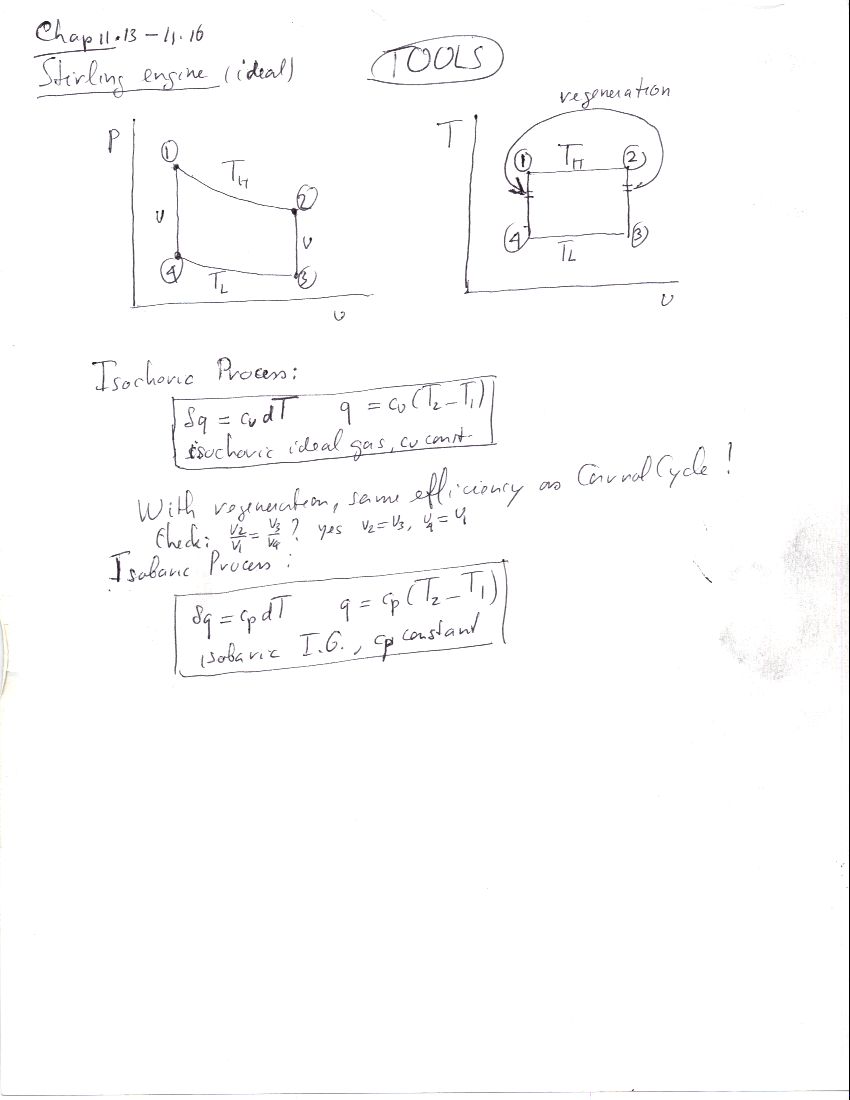 Chap 11.13 – 11.16
Stirling engine (ideal)
TOOLS
P
1
T_H
2
v
v
4
T_L
3
v
regeneration
T
1
T_H
2
4
T_L
3
v
Isochoric Process:
δq = cv dT q = cv (T2 – T1)
isochoric ideal gas, cv const.
With regeneration, same efficiency as Carnot Cycle!
Check: v2/v1 = v3/v4 ? yes v2 = v3, v4 = v1
Isobaric Process:
δq = cp dT q = cp (T2 – T1)
isobaric I.G., cp constant